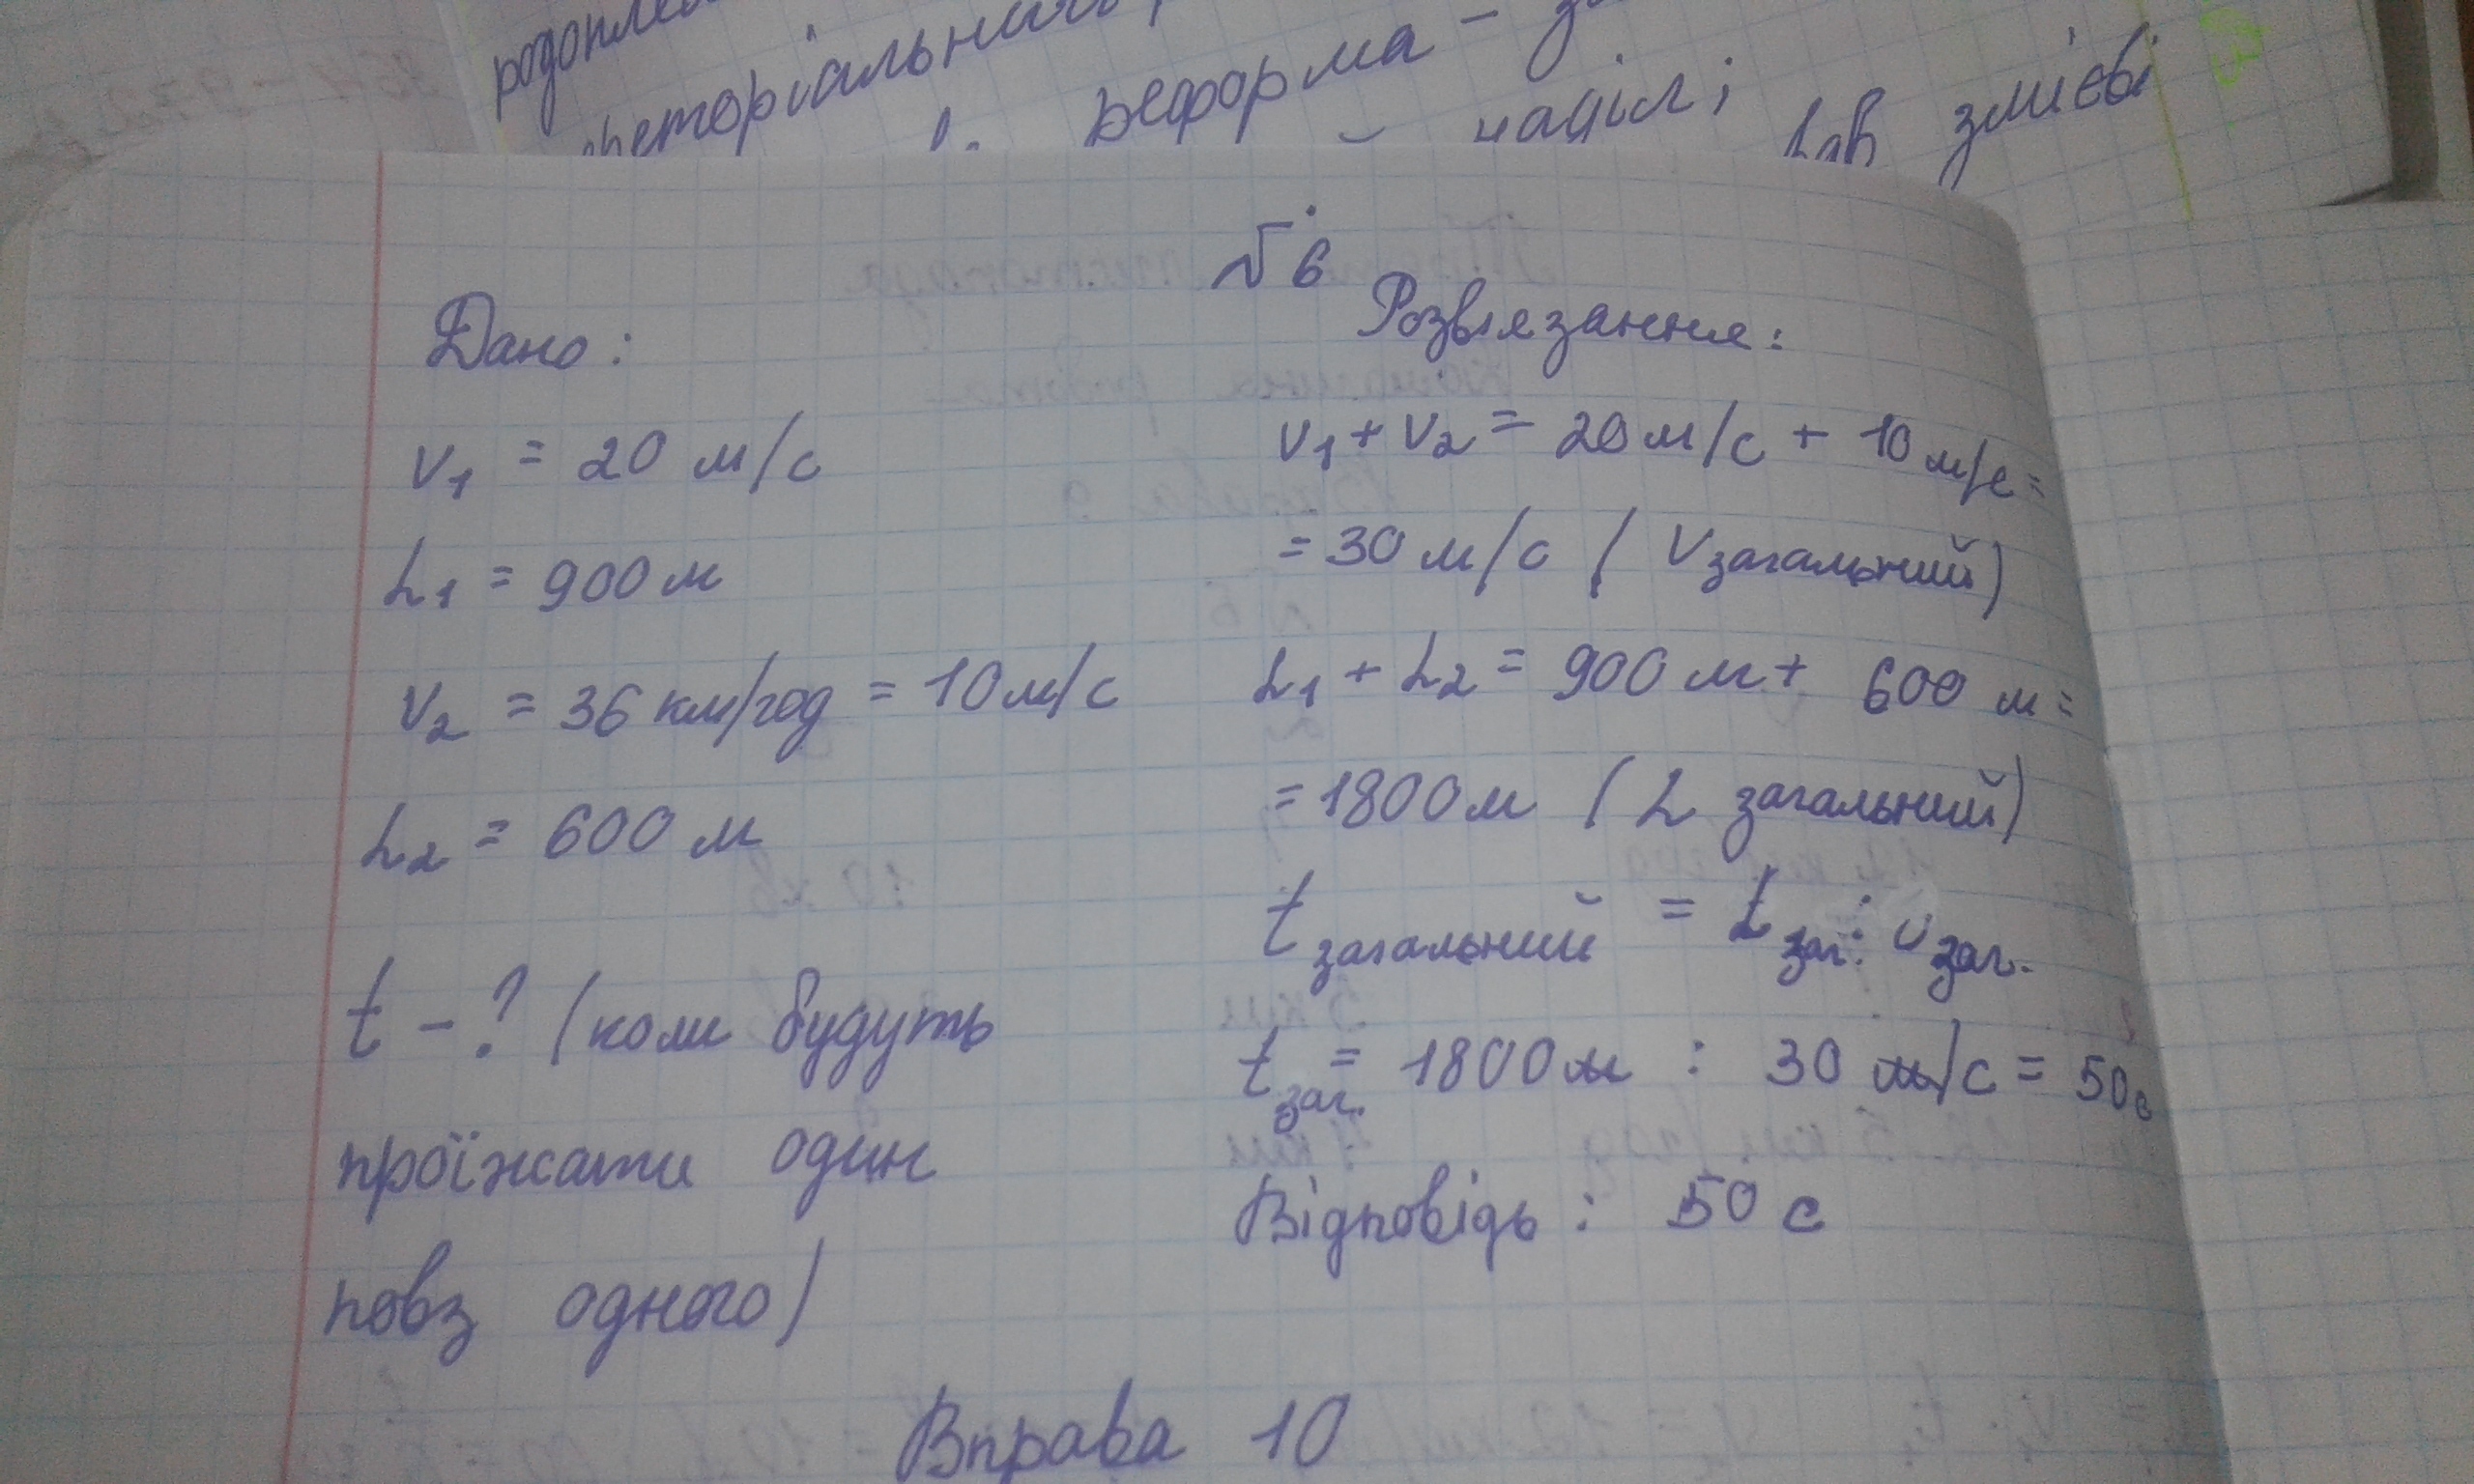 реформа –
наділ;
змієві
№ 6
Дано:
v₁ = 20 м/с
L₁ = 900 м
v₂ = 36 км/год = 10 м/с
L₂ = 600 м
t – ? (коли будуть
проїжати один
повз одного)
Розв'язання:
v₁ + v₂ = 20 м/с + 10 м/с =
= 30 м/с ( v загальний)
L₁ + L₂ = 900 м + 600 м =
= 1800 м ( L загальний)
t загальний = L заг. : v заг.
t заг. = 1800 м : 30 м/с = 50 с
Відповідь : 50 с
Вправа 10